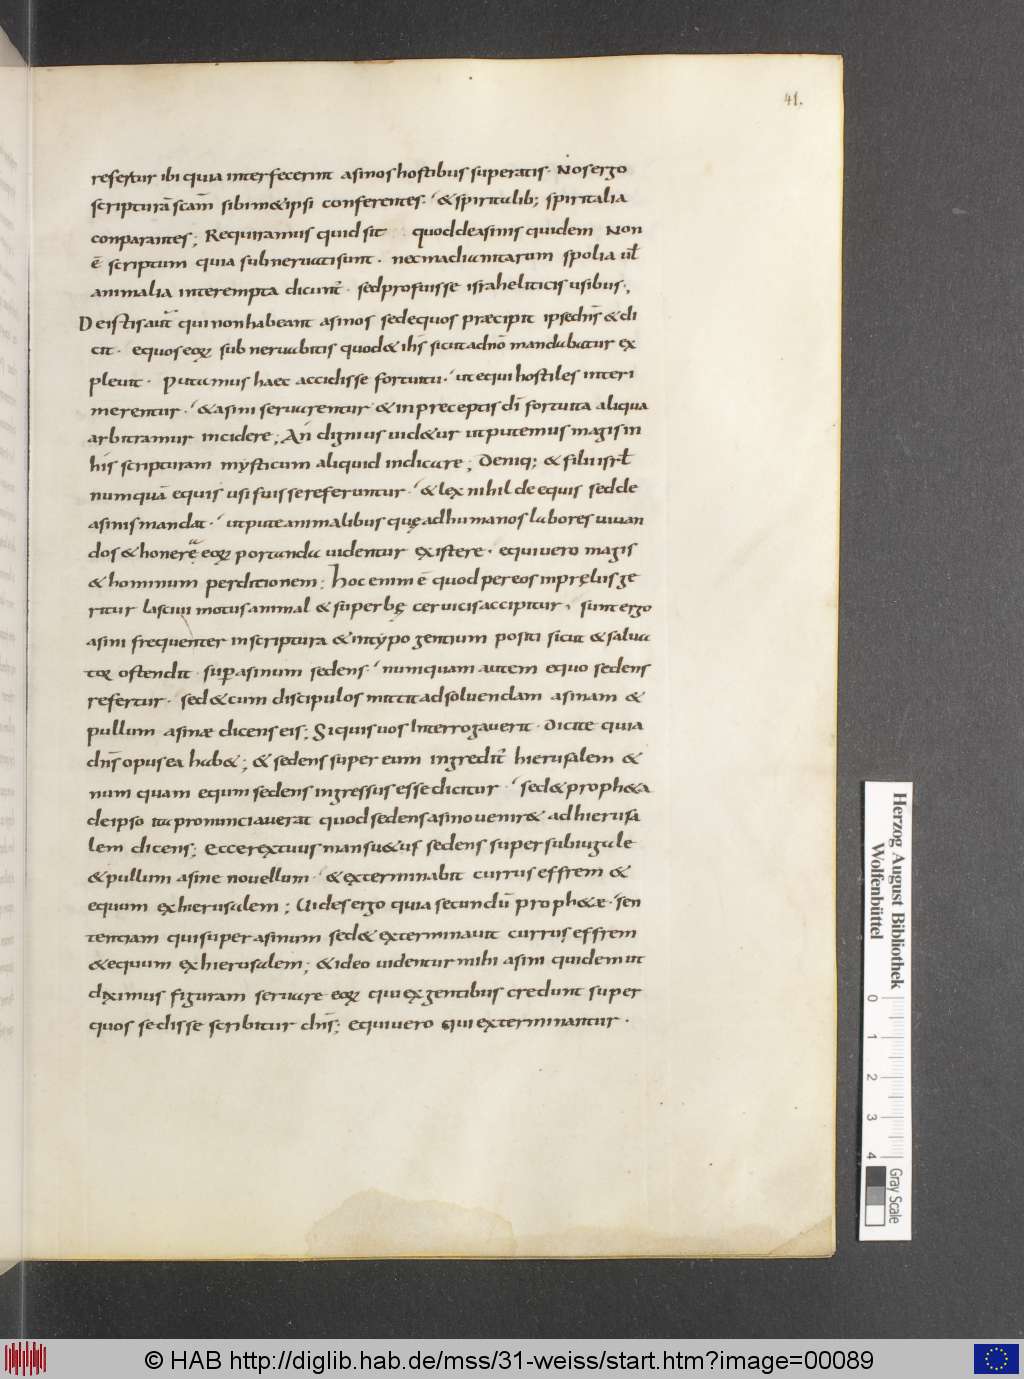 41.
refertur ibi quia interfecerint asinos hostibus superatis· Nos ergo
scripturā scām sibim&ipsi conferentes· & spiritulib; spiritalia
conparantes; Requiramus quid sit quod de asinis quidem Non
ē scriptum quia subneruati sunt· nec madianitarum spolia ul̄
animalia interempta dicunt̄· sed profuisse israheliticis usibus;
De istis aut̄ qui non habeant asinos sed equos præcipit ipse dn̄s & di
cit· equos eoꝝ subneruabitis quod & ih̄s sicut a dn̄o mandabatur ex
pleuit· Putamus haec accidisse fortuitu· ut equi hostiles interi
merentur· & asini seruarentur & in preceptis dī fortuita aliqua
arbitramur incidere; An dignius uid&ur ut putemus magis in
his scripturam mysticum aliquid indicare; Deniq; & filii isrł
numquā equis usi fuisse referuntur· & lex nihil de equis sed de
asinis mandat· utpute animalibus quę ad humanos labores iuuan
dos & honerę eoꝝ portanda uidentur existere· equi uero magis
& hominum perditionem; hoc enim ē quod per eos in pręliis ge
ritur lasciui motus animal & superbę ceruicis accipitur, sunt ergo
asini frequenter in scriptura & in typo gentium positi sicut & salua
toꝝ ostendit· sup asinum sedens· numquam autem equo sedens
refertur· sed & cum discipulos mittit ad soluendam asinam &
pullum asinæ dicens eis; Siquis uos Interrogauerit· Dicite quia
dn̄s opus ea hab&; & sedens super eum ingredit̄ hierusalem &
num quam equm sedens ingressus esse dicitur· sed & proph&a
de ipso ita pronunciauerat quod sedens asino uenir& ad hierusa
lem dicens; Ecce rex tuus mansu&us sedens super subiugale
& pullum asine nouellum· & exterminabit currus effrem &
equum ex hierusalem; Uides ergo quia secundū proph&æ· sen
tentiam qui super asinum sed& exterminauit currus effrem
& equum ex hierusalem; & ideo uidentur mihi asini quidem ut
diximus figuram seruare eoꝝ qui ex gentibus credunt super
quos sedisse scribitur dn̄s; equi uero qui exterminantur·
Herzog August Bibliothek
Wolfenbüttel
0 1 2 3 4
Gray Scale
© HAB http://diglib.hab.de/mss/31-weiss/start.htm?image=00089